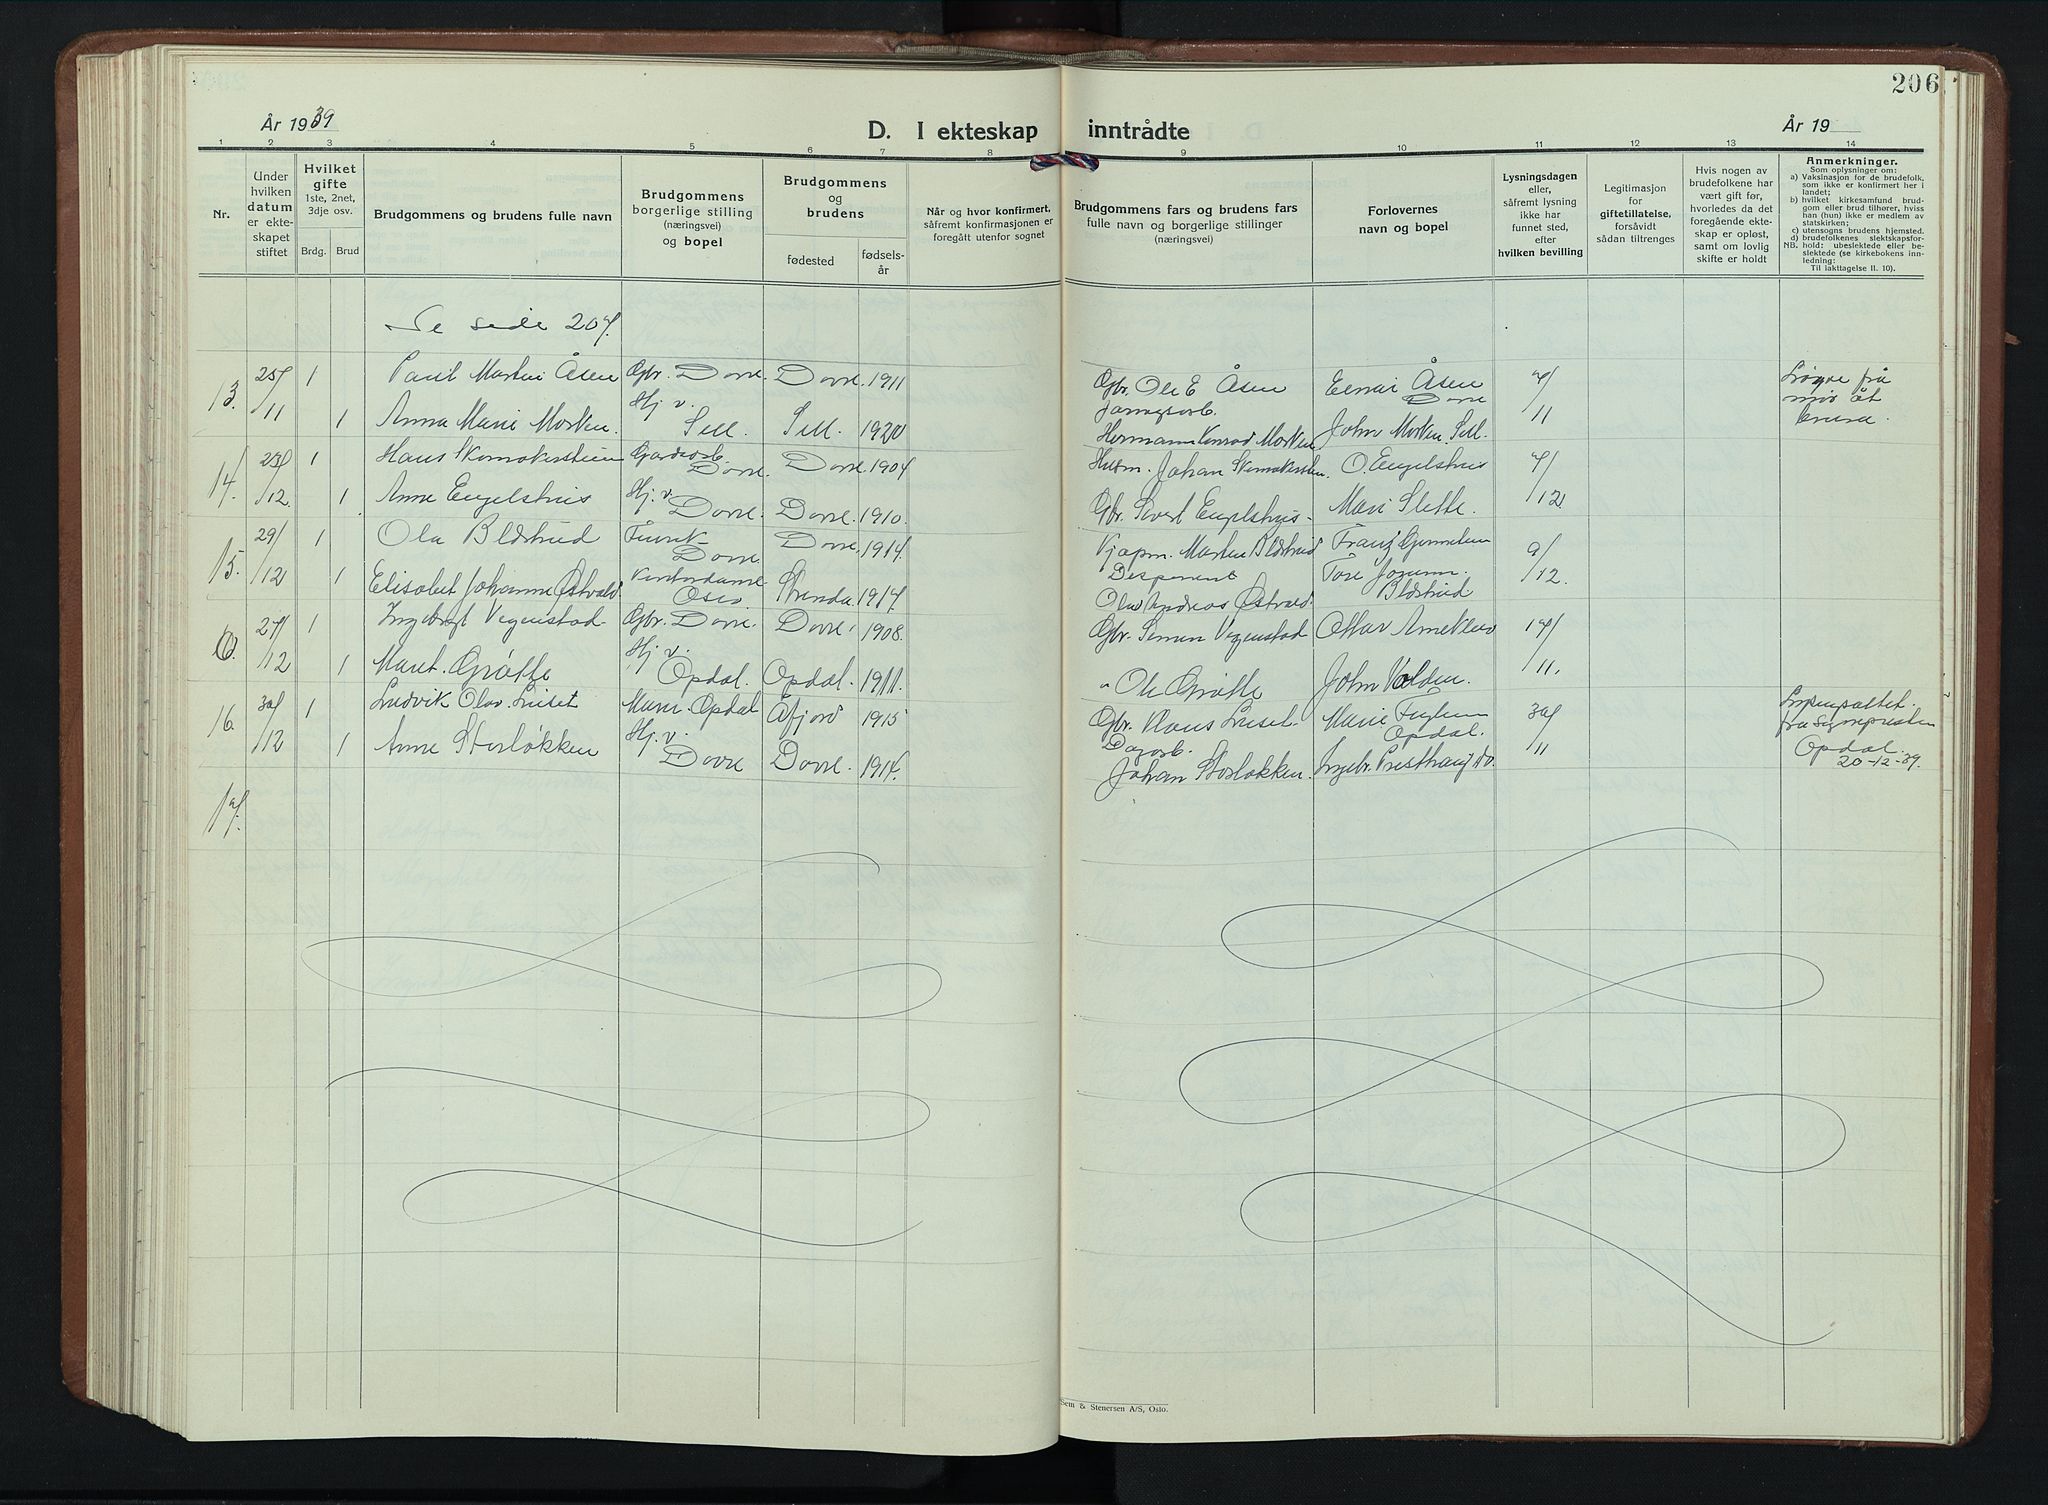 206
År 1939
D. I ekteskap inntrådte
År 19
1 2 3 4 5 6 7 8 9 10 11 12 13 14
Nr.
Under
hvilken
datum
er ekte-
skapet
stiftet
Hvilket
gifte
1ste, 2net,
3dje osv.
Brdg. Brud
Brudgommens og brudens fulle navn
Brudgommens
borgerlige stilling
(næringsvei)
og bopel
Brudgommens
og
brudens
fødested
fødsels-
år
Når og hvor konfirmert,
såfremt konfirmasjonen er
foregått utenfor sognet
Brudgommens fars og brudens fars
fulle navn og borgerlige stillinger
(næringsvei)
Forlovernes
navn og bopel
Lysningsdagen
eller,
såfremt lysning
ikke har
funnet sted,
efter
hvilken bevilling
Legitimasjon
for
giftetillatelse,
forsåvidt
sådan tiltrenges
Hvis nogen av
brudefolkene har
vært gift før,
hvorledes da det
foregående ekte-
skap er opløst,
samt om lovlig
skifte er holdt
Anmerkninger.
Som oplysninger om:
a) Vaksinasjon for de brudefolk,
som ikke er konfirmert her i
landet;
b) hvilket kirkesamfund brud-
gom eller brud tilhører, hviss
han (hun) ikke er medlem av
statskirken;
c) utensogns brudens hjemsted.
d) brudefolkenes slektskapsfor-
NB. hold: ubeslektede eller be-
slektede (se kirkebokens inn-
ledning:
Til iakttagelse II. 10).
Se side 207.
13. 25/11 1 Paul Morten Åsen Gbr. Dovre. Dovre. 1911 Gbr. Ole E Åsen Einar Åsen Dovre 7/11
1 Anna Marie Morken. Hj. v. Sell. Sell. 1920 Hermann Konrad Morken John Morken. Sell.
fra
14. 23/12 1 Hans Skomakersteien Dovre. Dovre. 1904 Johan O. Engelshus 7/12
1 Anne Engelshus Hj. v. Dovre. Dovre. 1910. Gbr. Sivert Engelshus Mari Slette.
15. 29/12 1 Ola Blæstrud Dovre Dovre. 1914. Kjøpm. Morten Blæstrud Franz 9/12.
1 Elisabet Johanne Østvold Kontordame Oslo. Strenda 1917 Disponent Olav Andreas Østvold Tore Blæstrud
27/12 1 Ingebrigt Vegenstad Gbr. Dovre. Dovre. 1908. Gbr. Simen Vegenstad Ottar 17/11.
1 Marit Grøtte Hj. v. Opdal. Opdal. 1911. " Ole Grøtte John Volden.
16. 30/12 1 Ludvik Olav Liset Opdal Åfjord 1915 Gbr. Klaus Liset Marie Opdal. 30/11
1 Anne Storløkken Hj. v. Dovre Dovre. 1914. Johan Storløkken. Ingebr. Presthaug do.
fra sognepresten
Opdal.
20-12-39.
17.
Sem & Stenersen A/S, Oslo.